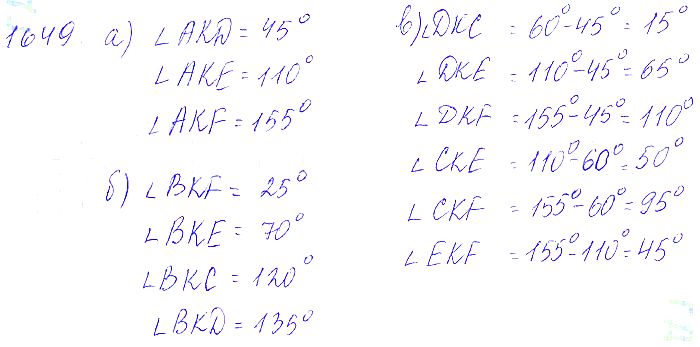 1649 а) ∠AKD = 45°
∠AKE = 110°
∠AKF = 155°
б) ∠BKF = 25°
∠BKE = 70°
∠BKC = 120°
∠BKD = 135°
в) ∠DKC = 60° - 45° = 15°
∠DKE = 110° - 45° = 65°
∠DKF = 155° - 45° = 110°
∠CKE = 110° - 60° = 50°
∠CKF = 155° - 60° = 95°
∠EKF = 155° - 110° = 45°